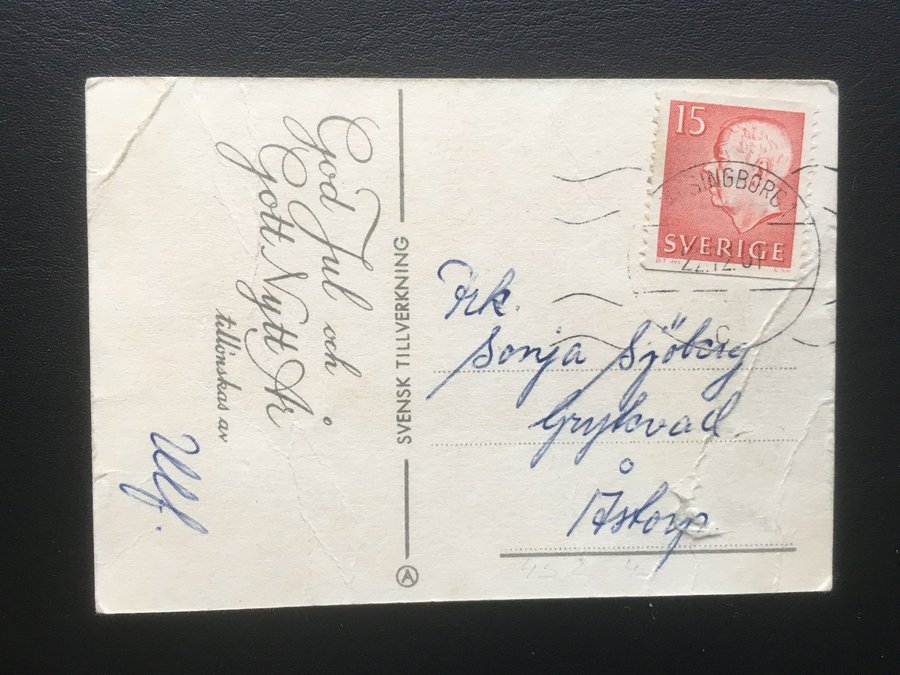 God Jul och
Gott Nytt År
tillönskas av
Ulf.
SVENSK TILLVERKNING
A
15
SVERIGE
SINGBORG
22.12.61
C
Frk.
Sonja Sjöberg
Grytevad
Åstorp.